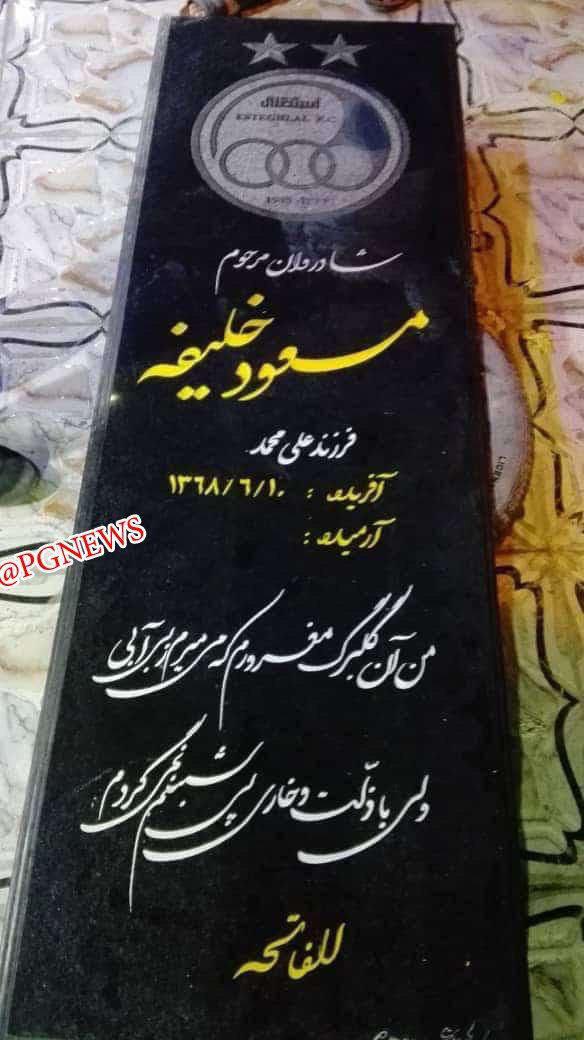 استقلال
ESTEGHLAL F.C
شادروان مرحوم
مسعود خلیفه
فرزند علی محمد
آفریده : ۱۳۶۸/۶/۱۰
آرمیده :
@PGNEWS
من آن گلبرگ مغرورم که می میرم ز بی آبی
ولی با ذلّت و خاری پی شبنم نمی گردم
للفاتحه